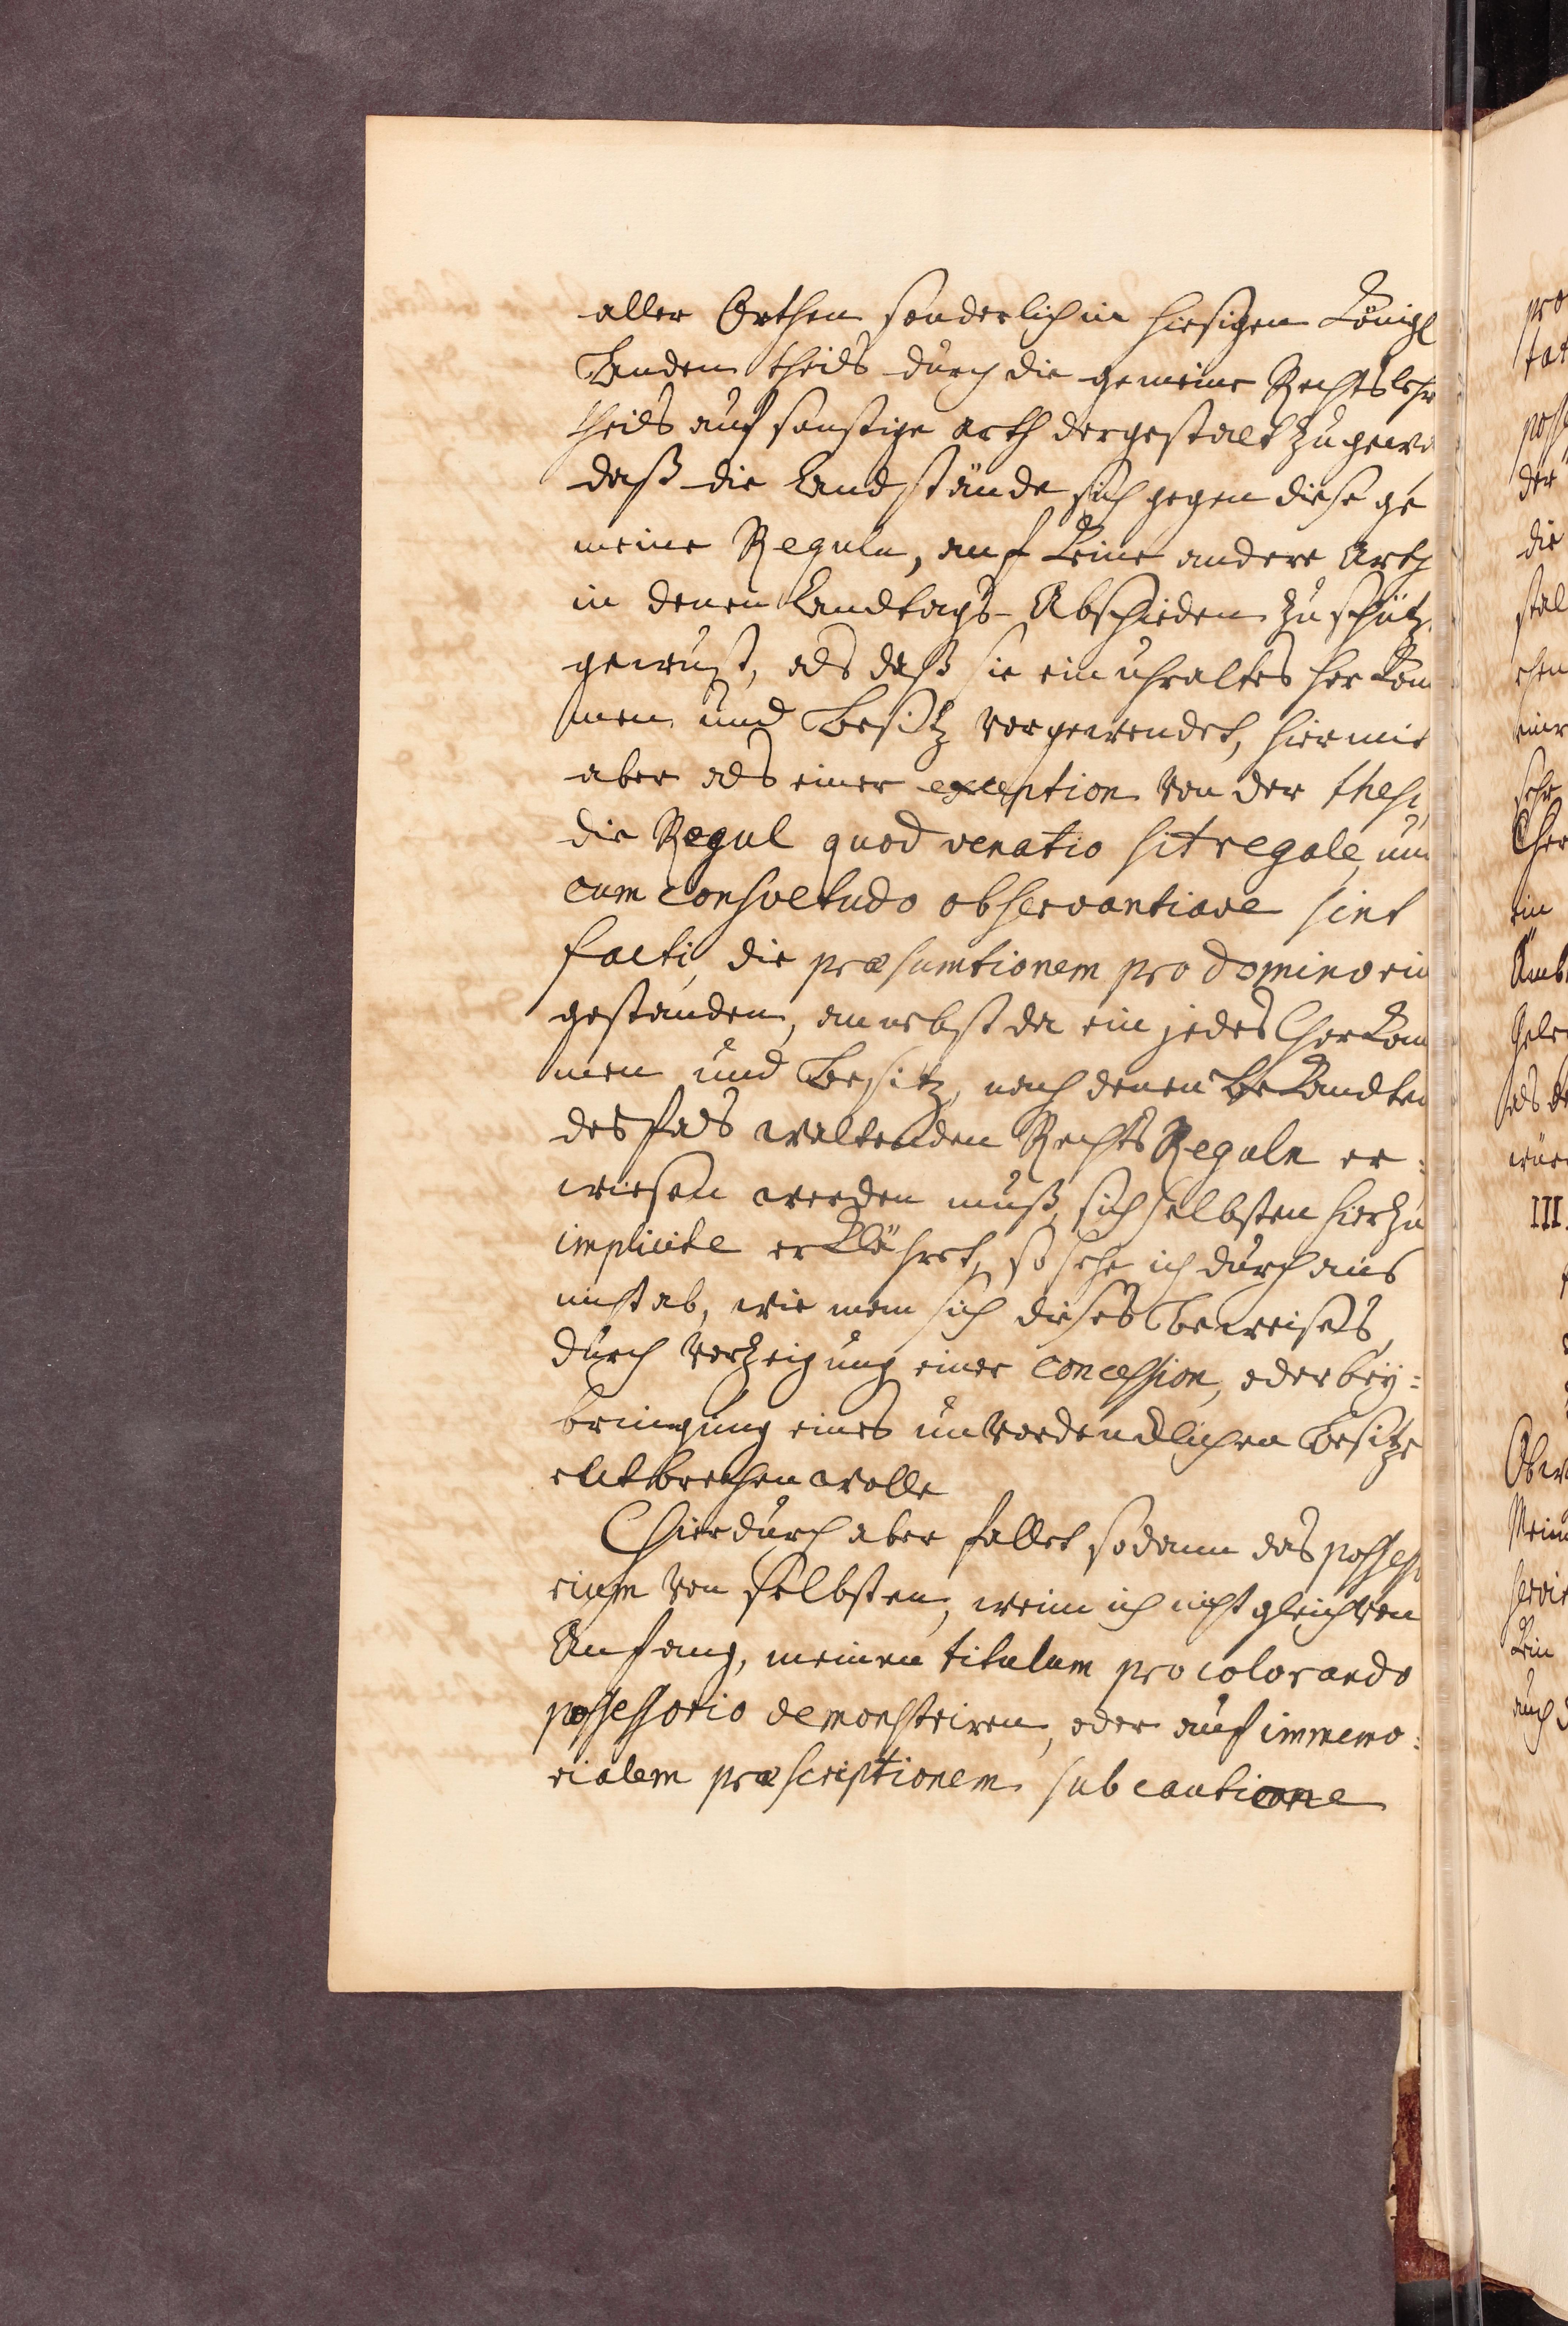 aller Orthen sonderlich in hiesigen Königl
Landen theils durch die gemeine Rechtslehr
theils auf sonstige arth dergestalt zu gewa
daß die Landstände sich gegen diese ge
meine Reguln, auf keine andere Arth
in denen Landtags-Abschieden zu schütz
gewust, als daß sie ein uhraltes herkom
men und Besitz vorgewendet, hiermit
aber als einer exception von der thesi,
die Regul quod venatio sit regale, und
cum consvetudo observantiave sint
facti, die præsumtionem pro domino ein
gestanden, annebst da ein jedes Herkom
men und Besitz, nach denen bekandten
desfals waltenden Rechts Reguln er:
wiesen werden muß, sich selbsten hierzu
implicite erklähret, so sehe ich durchaus
nicht ab, wie man sich dieses Beweises,
durch Vorzeigung einer concession, oder bey:
bringung eines unvordendlichen Besitzes
entbrechen wolle
Hierdurch aber fallet sodann das possesso
rium von selbsten, wenn ich nicht gleich von
Anfang, meinen titulum pro colorando
possessorio demonstriren, oder auf immemo:
rialem præscriptionem sub cautione
pro
tat
poss
der
die
stal
chen
einr
sehr
Her
ein
Ambt
Gele
als de
wür
III.
Obw
Mein
servi
kein
auch d